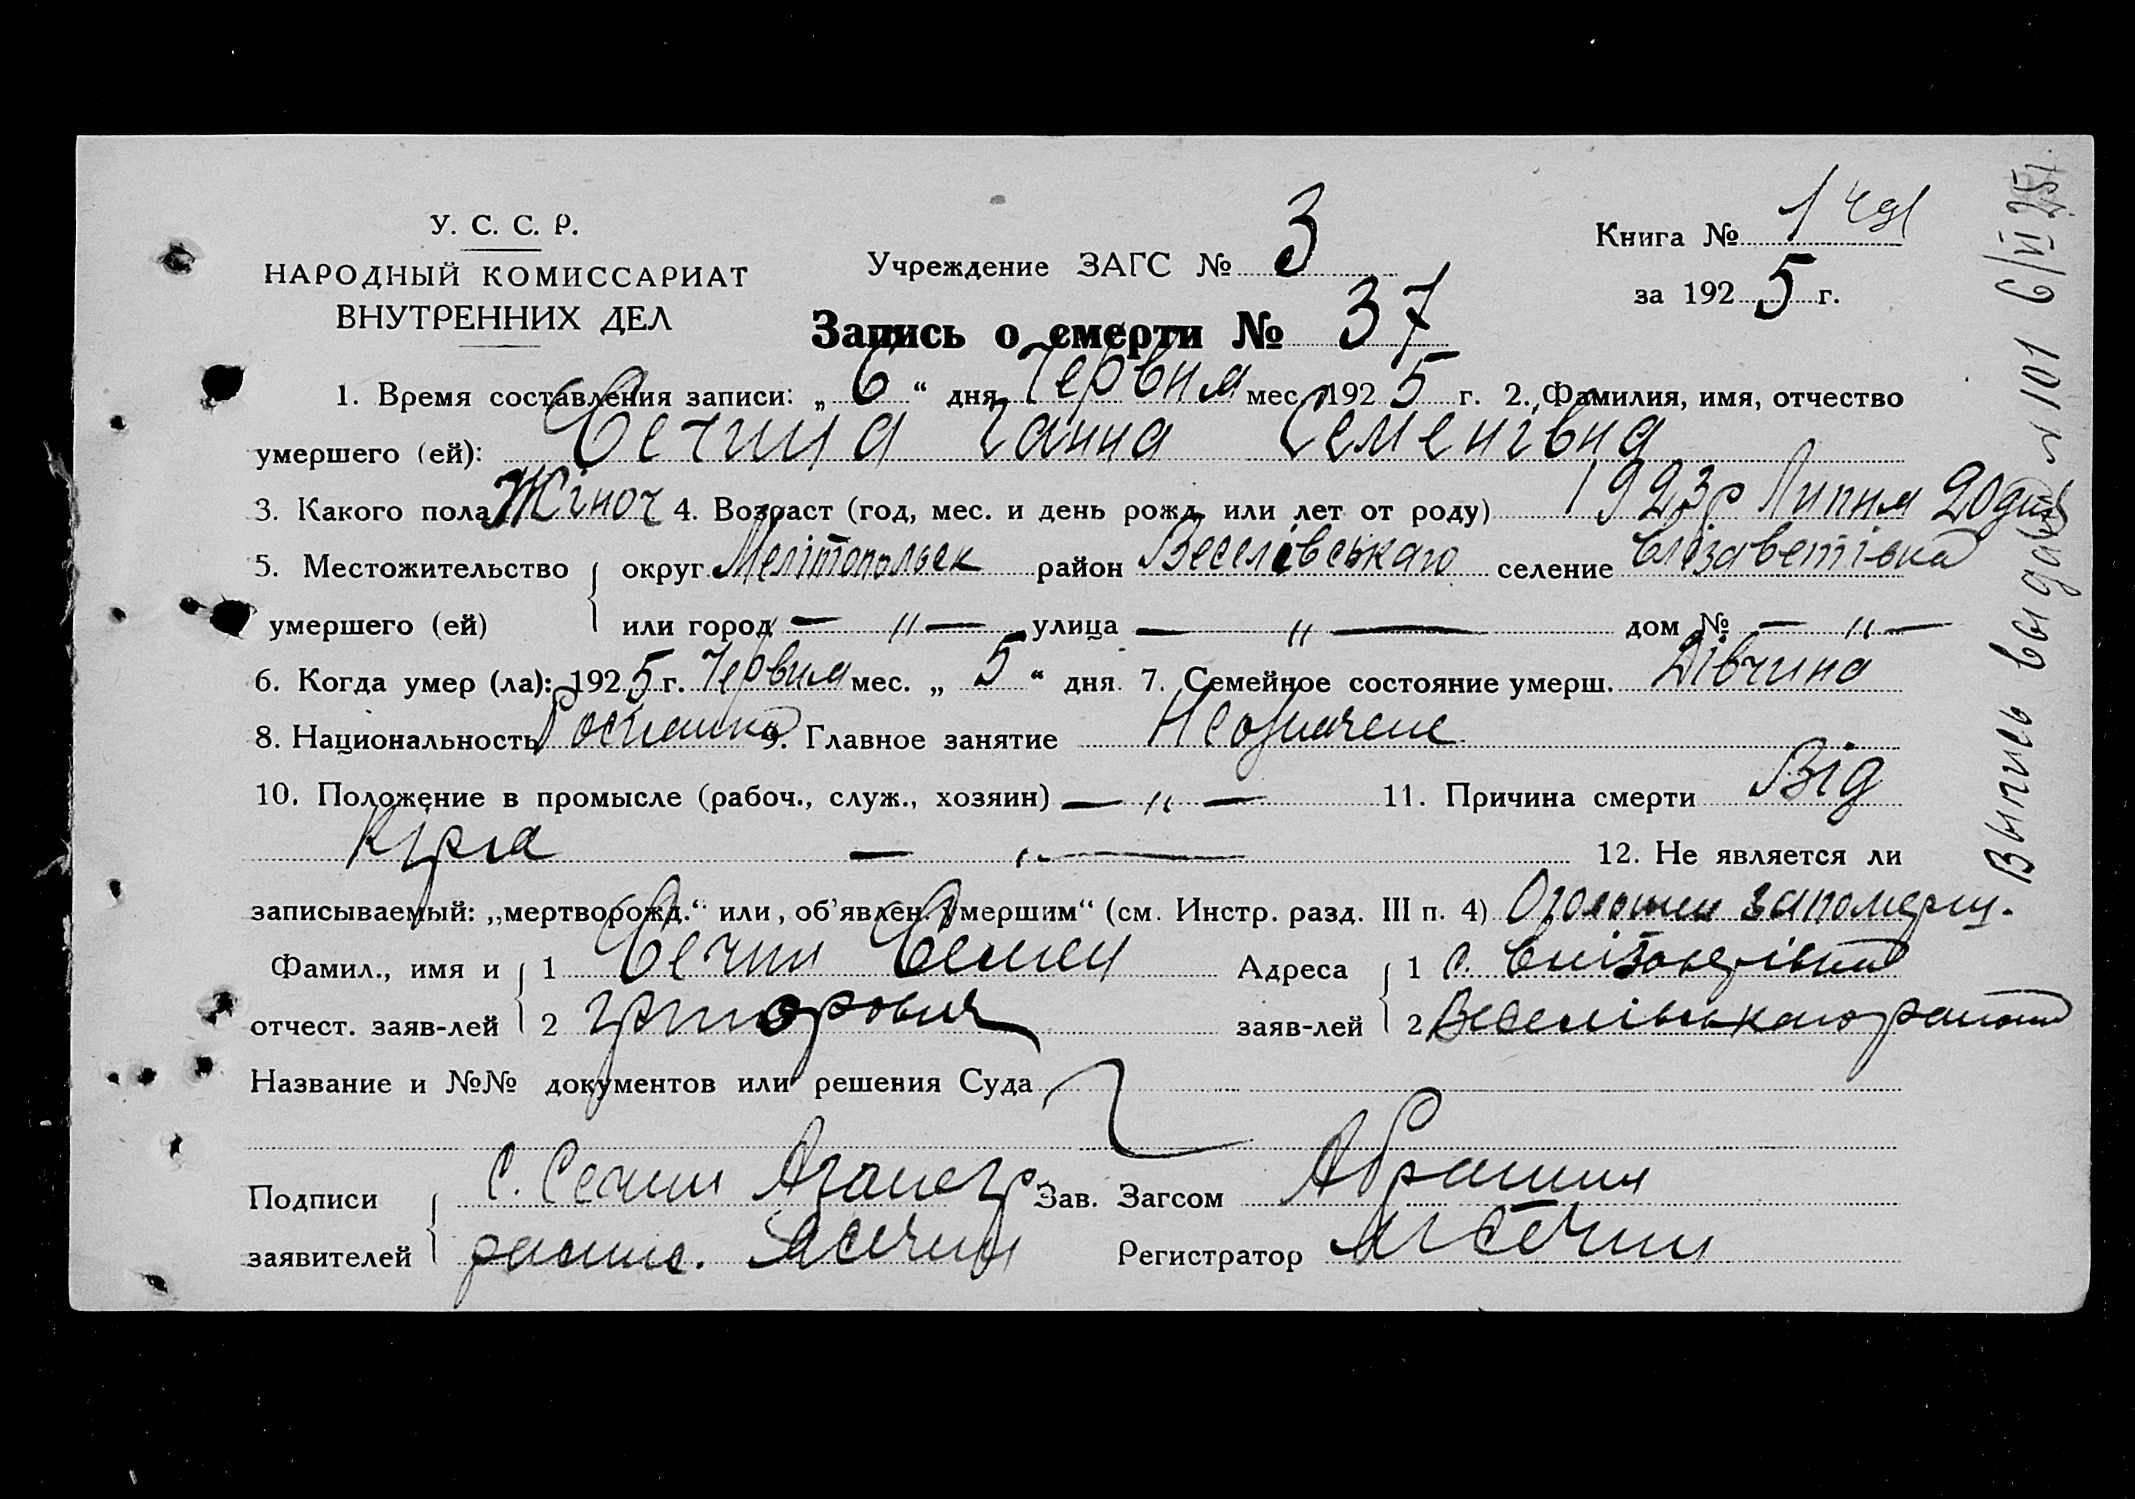 У. С. С. Р.
НАРОДНЫЙ КОМИССАРИАТ
ВНУТРЕННИХ ДЕЛ
Учреждение ЗАГС № 3
Книга № 1
за 1925 г.
Запись о смерти № 37
1. Время составления записи: „ 6 “ дня Червня мес. 1925 г. 2. Фамилия, имя, отчество
умершего (ей): Сечина Ганна Семенівна
3. Какого пола Жіноч 4. Возраст (год, мес. и день рожд. или лет от роду) 1923 р Липня 20 дня
5. Местожительство округ Мелітопольск район Веселівськаго селение Єлізаветівка
умершего (ей) или город — „ — улица — „ — дом № — „ —
6. Когда умер (ла): 1925 г. Червня мес. „ 5 “ дня. 7. Семейное состояние умерш. Дівчина
8. Национальность 9. Главное занятие Незначене
10. Положение в промысле (рабоч., служ., хозяин) — „ — 11. Причина смерти Від
Кіра — „ — 12. Не является ли
записываемый: „мертворожд.“ или „об’явлен. умершим“ (см. Инстр. разд. III п. 4)
Фамил., имя и 1 Сечин Семен Адреса 1 с. Єлізаветівка
отчест. заяв-лей 2 Григорович заяв-лей 2 Веселівськаго району
Название и №№ документов или решения Суда
Подписи С. Сечин Зав. Загсом
заявителей Регистратор Сечин
Выпись выдана № 101 6/VI 25 г.